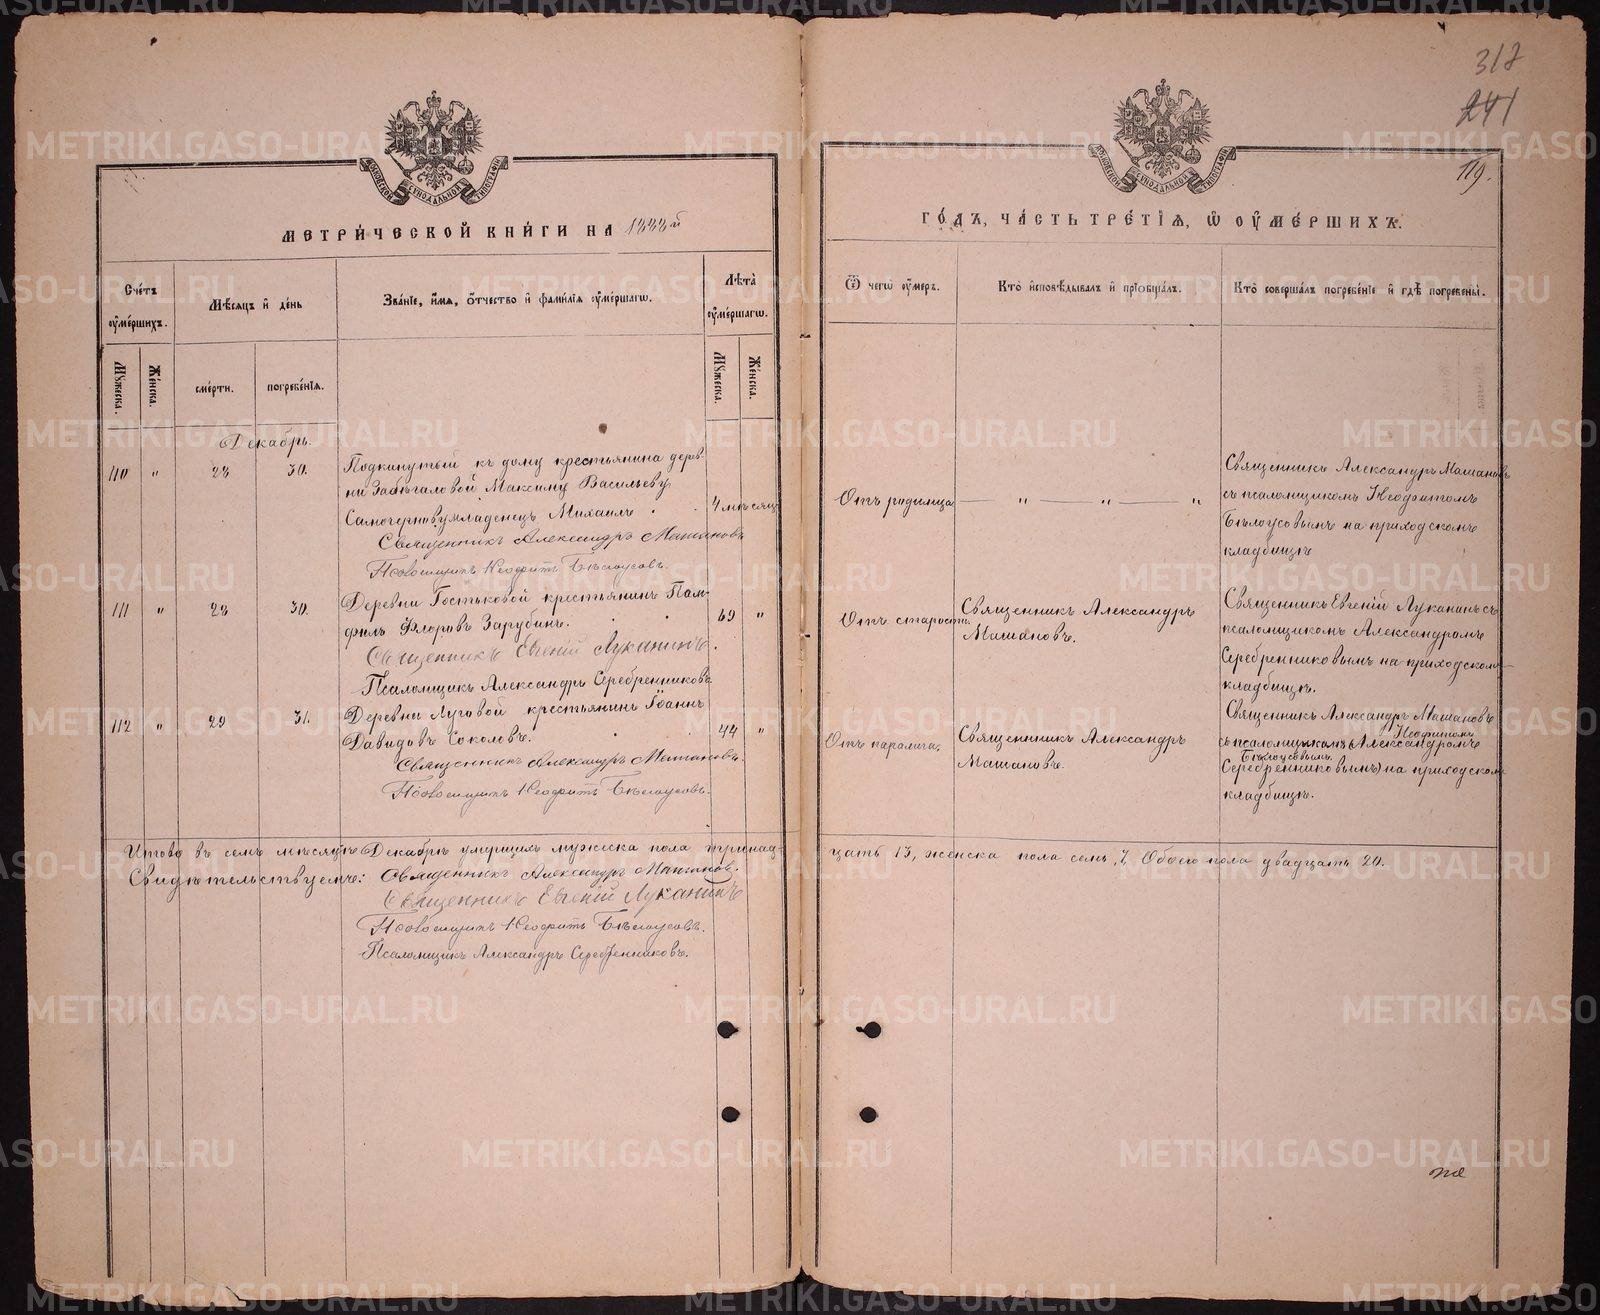 318
241
119.
МОСКОВСКОЙ СѴНОДАЛЬНОЙ ТИПОГРАФІИ
МОСКОВСКОЙ СѴНОДАЛЬНОЙ ТИПОГРАФІИ
МЕТРИ́ЧЕСКОЙ КНИ́ГИ НА 1888й
ГО́ДЪ, ЧА́СТЬ ТРЕ́ТІЯ, Ѿ ОУ҆МЕ́РШИХЪ.
Сче́тъ оу҆ме́ршихъ.
Мѣ́сяцъ и҆ де́нь
Зва́ніе, и҆́мя, ѻ҆́тчество и҆ фами́лія оу҆ме́ршагѡ.
Лѣта̀ оу҆ме́ршагѡ.
Мꙋ́жеска.
Же́нска.
сме́рти.
погребе́нія.
Мꙋ́жеска.
Же́нска.
Ѿ чегѡ̀ оу҆́меръ.
Кто̀ и҆сповѣ́дывалъ и҆ прїѻбща́лъ.
Кто̀ соверша́лъ погребе́ніе и҆ гдѣ̀ погребены̀.
Декабрь.
110 " 28 30. Подкинутый къ дому крестьянина дерев-
ни Забѣгаловой Максиму Васильеву
Самочернову младенецъ Михаилъ . . 4 мѣсяц.
Священникъ Александръ Машановъ
Псаломщикъ Неофитъ Бѣлоусовъ.
Отъ родимца — " — " — "
Священникъ Александръ Машановъ
съ псаломщикомъ Неофитомъ
Бѣлоусовымъ на приходскомъ
кладбищѣ
111 " 28 30. Деревни Гостьковой крестьянинъ Пам-
филъ Флоровъ Зарубинъ. . . 69 "
Священникъ Евгеній Луканинъ.
Псаломщикъ Александръ Серебренниковъ
Отъ старости.
Священникъ Александръ
Машановъ.
Священникъ Евгеній Луканинъ съ
псаломщикомъ Александромъ
Серебренниковымъ на приходском
кладбищѣ.
112 " 29 31. Деревни Луговой крестьянинъ Іоаннъ
Давидовъ Соколовъ. . . 44 "
Священникъ Александръ Машановъ.
Псаломщикъ Неофитъ Бѣлоусовъ.
Отъ паралича.
Священникъ Александръ
Машановъ.
Священникъ Александръ Машановъ
Неофитомъ
съ псаломщикомъ (Александромъ
Бѣлоусовымъ
Серебренниковымъ) на приходском
кладбищѣ.
Итого въ семъ мѣсяцѣ Декабрѣ умершихъ мужеска пола тринад-
цать 13, женска пола семь, 7, Обоего пола двадцать 20.
Свидѣтельствуемъ: Священникъ Александръ Машановъ.
Священникъ Евгеній Луканинъ
Псаломщикъ Неофитъ Бѣлоусовъ.
Псаломщикъ Александръ Серебренниковъ.
METRIKI.GASO-URAL.RU